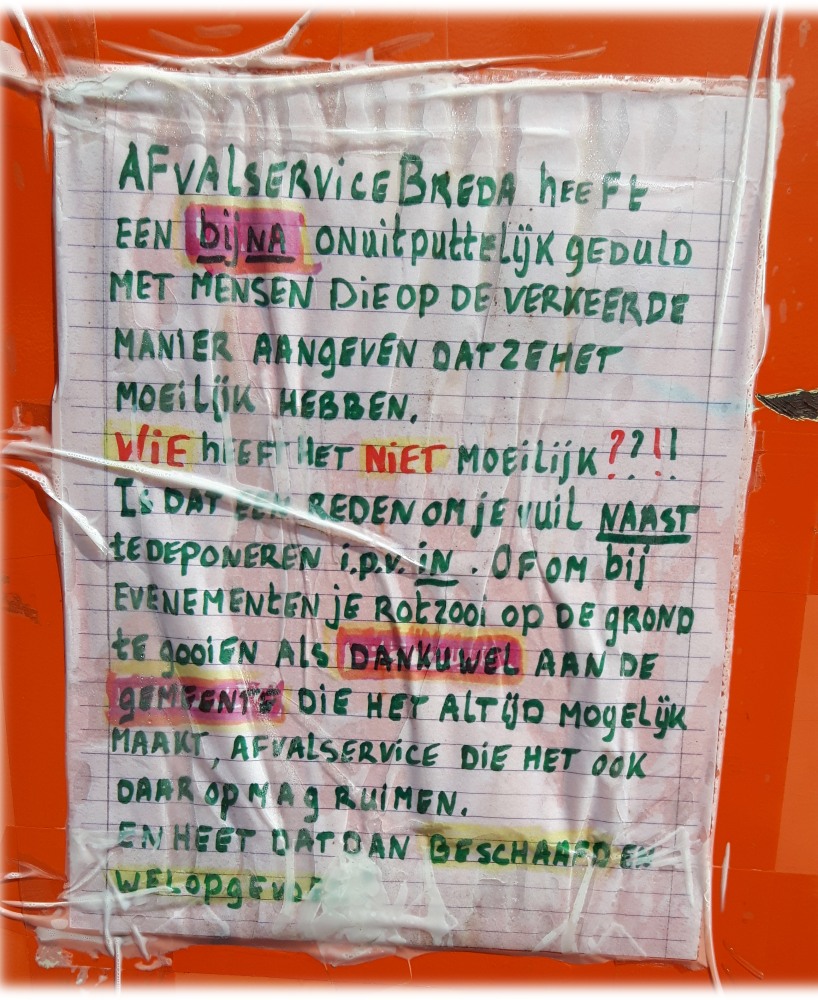 AFVALSERVICE BREDA HEEFT
EEN bijNA ONUITPUTTELIJK GEDULD
MET MENSEN DIE OP DE VERKEERDE
MANIER AANGEVEN DAT ZE HET
MOEILIJK HEBBEN.
WIE HEEFT HET NIET MOEILIJK??!!
IS DAT EEN REDEN OM JE VUIL NAAST
TE DEPONEREN i.p.v. iN . OF OM bij
EVENEMENTEN JE ROTZOOI OP DE GROND
TE GOOIEN ALS DANKUWEL AAN DE
GEMEENTE DIE HET ALTIJD MOGELIJK
MAAKT, AFVALSERVICE DIE HET OOK
DAAR OP MAG RUIMEN.
EN HEET DAT DAN BESCHAAFD EN